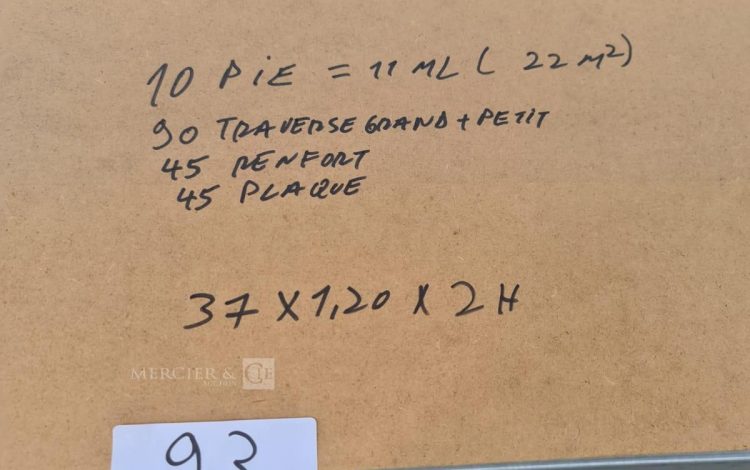 10 PiE = 11 ML ( 22 m²)
90 TRAVERSE GRAND + PETIT
45 RENFORT
45 PLAQUE
37 X 1,20 X 2 H
MERCIER & CIE
AUCTION
93